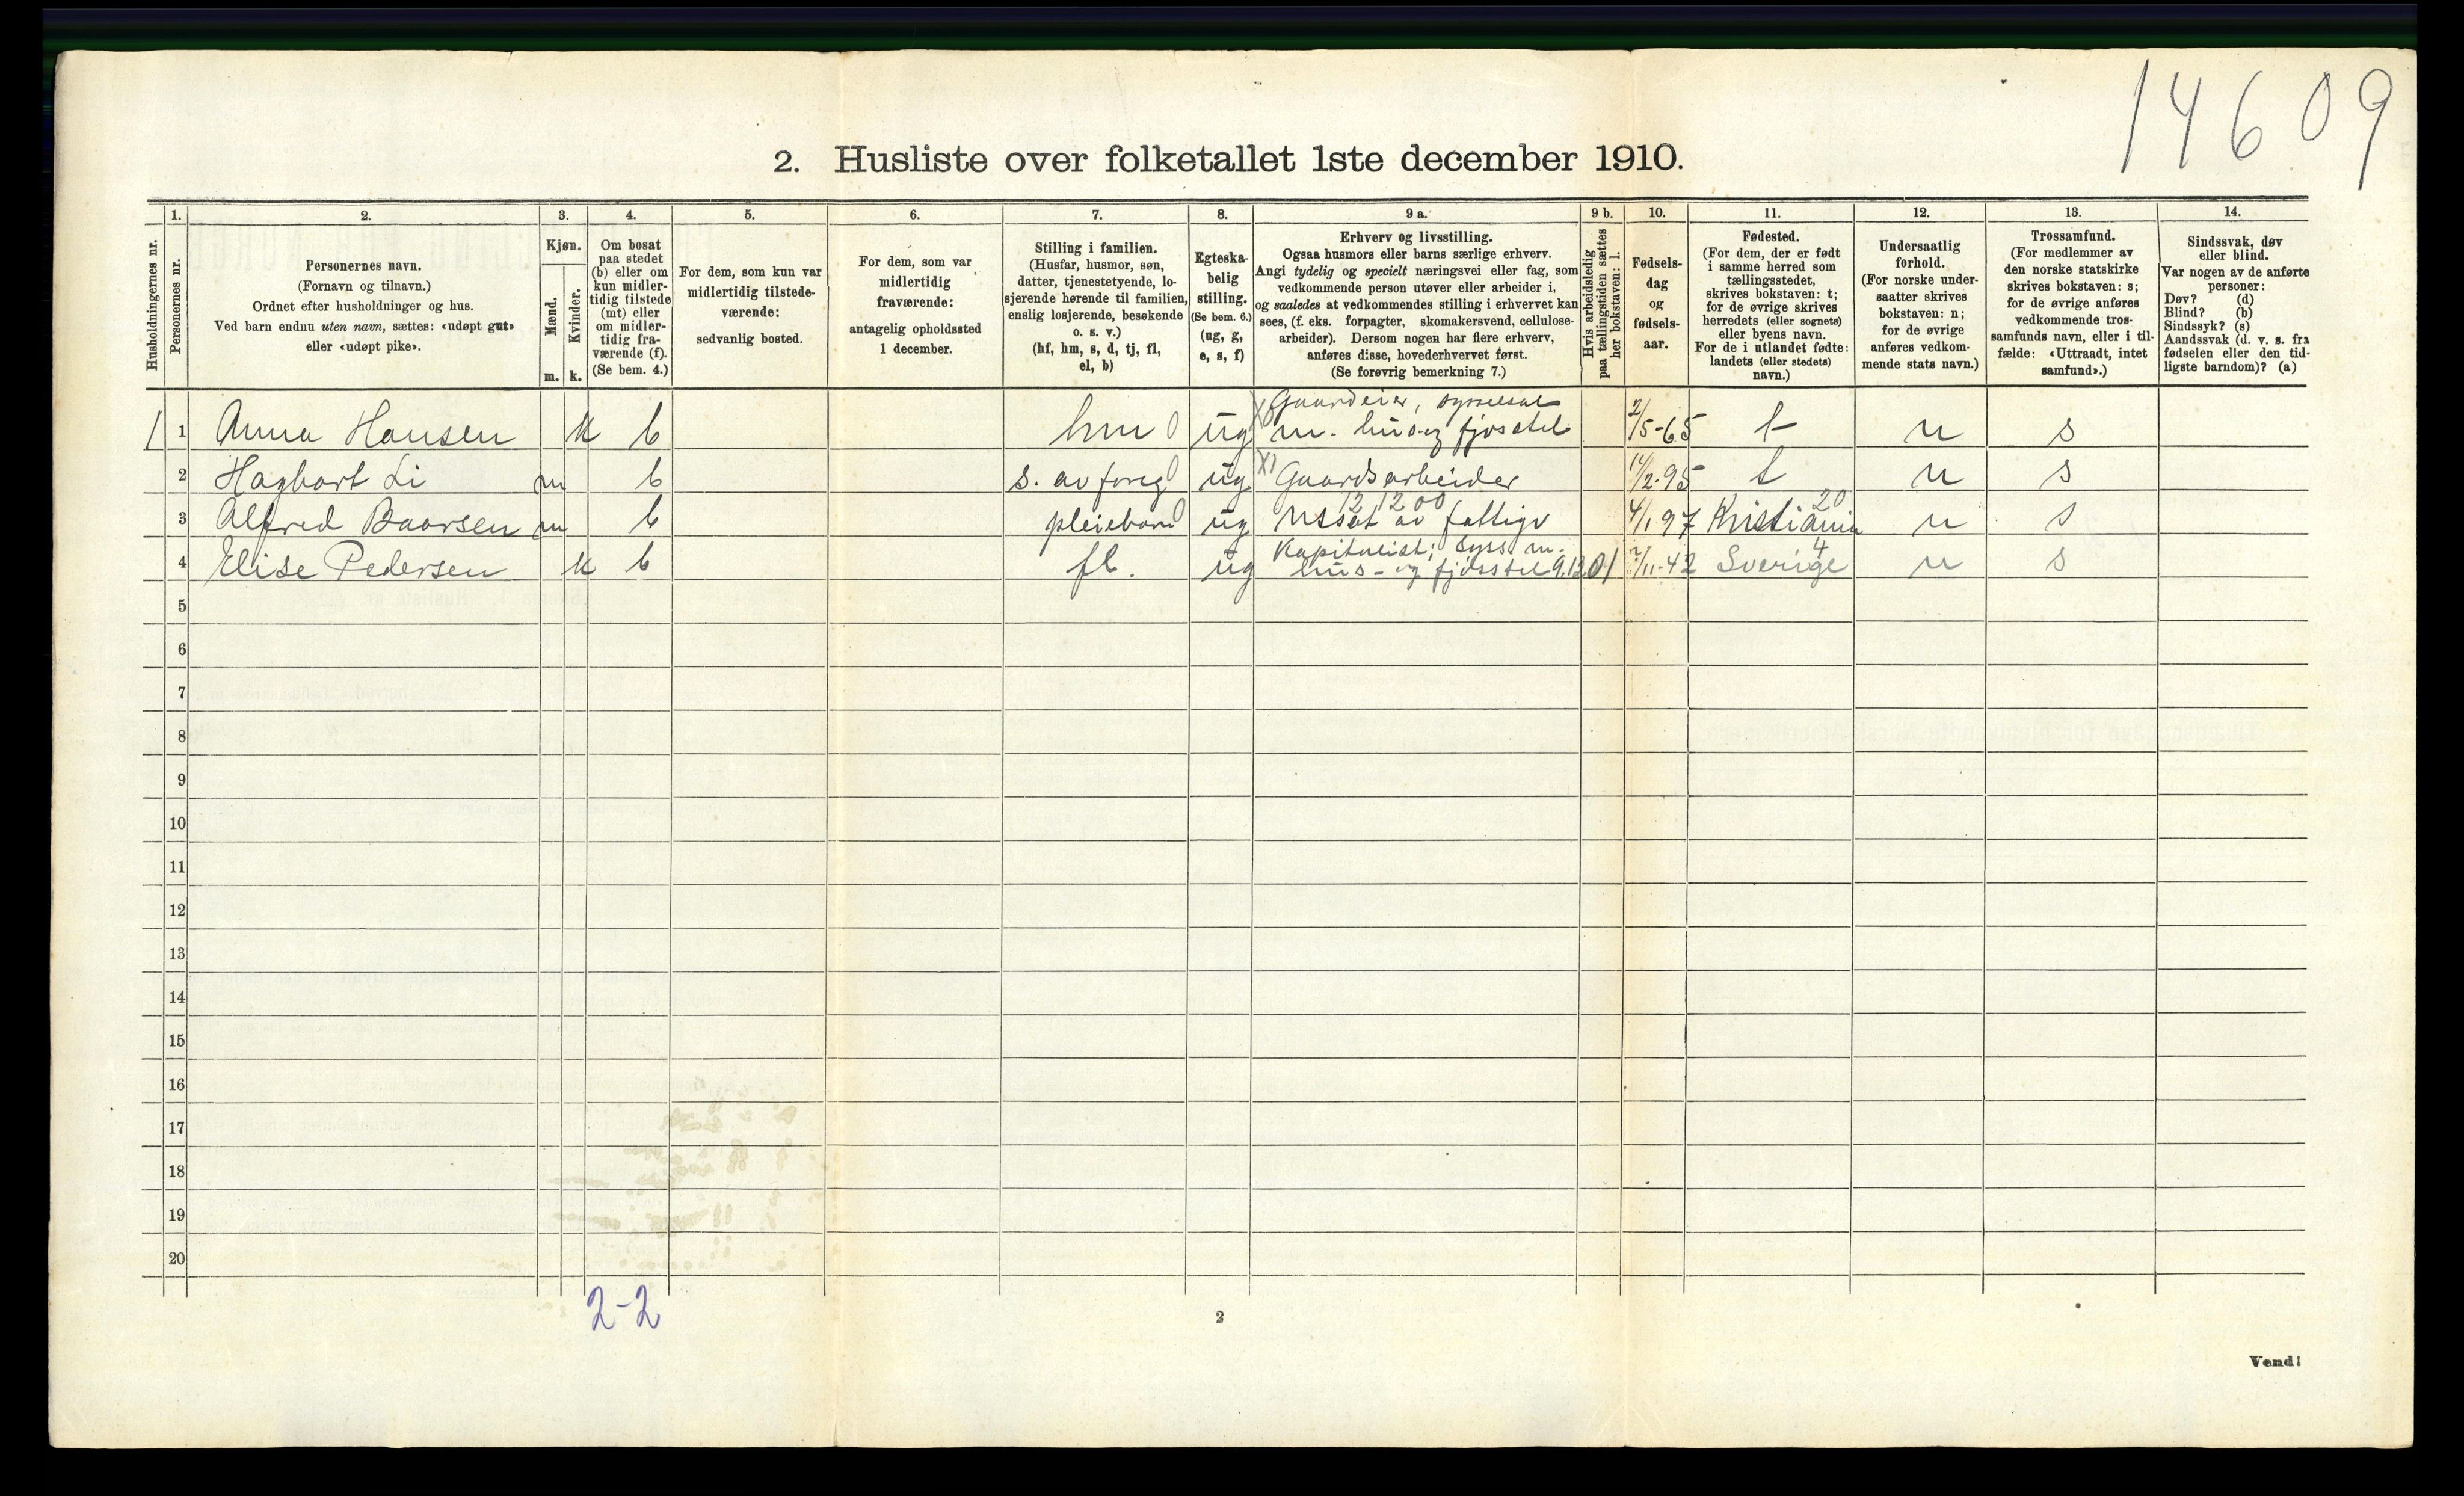 14609
2. Husliste over folketallet 1ste december 1910.
Husholdningernes nr.
1.
Personernes nr.
2.
Personernes navn.
(Fornavn og tilnavn.)
Ordnet efter husholdninger og hus.
Ved barn endnu uten navn, sættes: «udøpt gut»
eller «udøpt pike».
3.
Kjøn.
Mænd.
Kvinder.
m. k.
4.
Om bosat
paa stedet
(b) eller om
kun midler-
tidig tilstede
(mt) eller
om midler-
tidig fra-
værende (f).
(Se bem. 4.)
5.
For dem, som kun var
midlertidig tilstede-
værende:
sedvanlig bosted.
6.
For dem, som var
midlertidig
fraværende:
antagelig opholdssted
1 december.
7.
Stilling i familien.
(Husfar, husmor, søn,
datter, tjenestetyende, lo-
sjerende hørende til familien,
enslig losjerende, besøkende
o. s. v.)
(hf, hm, s, d, tj, fl,
el, b)
8.
Egteska-
belig
stilling.
(Se bem. 6.)
(ug, g,
e, s, f)
9 a.
Erhverv og livsstilling.
Ogsaa husmors eller barns særlige erhverv.
Angi tydelig og specielt næringsvei eller fag, som
vedkommende person utøver eller arbeider i,
og saaledes at vedkommendes stilling i erhvervet kan
sees, (f. eks. forpagter, skomakersvend, cellulose-
arbeider). Dersom nogen har flere erhverv,
anføres disse, hovederhvervet først.
(Se forøvrig bemerkning 7.)
9 b.
Hvis arbeidsledig
paa tællingstiden sættes
her bokstaven: l.
10.
Fødsels-
dag
og
fødsels-
aar.
11.
Fødested.
(For dem, der er født
i samme herred som
tællingsstedet,
skrives bokstaven: t;
for de øvrige skrives
herredets (eller sognets)
eller byens navn.
For de i utlandet fødte:
landets (eller stedets)
navn.)
12.
Undersaatlig
forhold.
(For norske under-
saatter skrives
bokstaven: n;
for de øvrige
anføres vedkom-
mende stats navn.)
13.
Trossamfund.
(For medlemmer av
den norske statskirke
skrives bokstaven: s;
for de øvrige anføres
vedkommende tros-
samfunds navn, eller i til-
fælde: «Uttraadt, intet
samfund».)
14.
Sindssvak, døv
eller blind.
Var nogen av de anførte
personer:
Døv? (d)
Blind? (b)
Sindssyk? (s)
Aandssvak (d. v. s. fra
fødselen eller den tid-
ligste barndom)? (a)
1 1 Anna Hansen k b hm 0 ug X) Gaardeier, sysselsat m. hus- og fjøsstel 2/5-65 t n s
2 Hagbart Li m b s. av foreg 0 ug X) Gaardsarbeider 14/2-95 t n s
12 12 00 20
3 Alfred Baarsen m b pleiebarn 0 ug av fattigv 4/1 97 Kristiania n s
4 Elise Pedersen k b fl. ug Kapitalist; syss m. hus- og fjøsstel 9.12 01 /11-42 Sverige 4 n s
5
6
7
8
9
10
11
12
13
14
15
16
17
18
19
20
2-2
2
Vend!